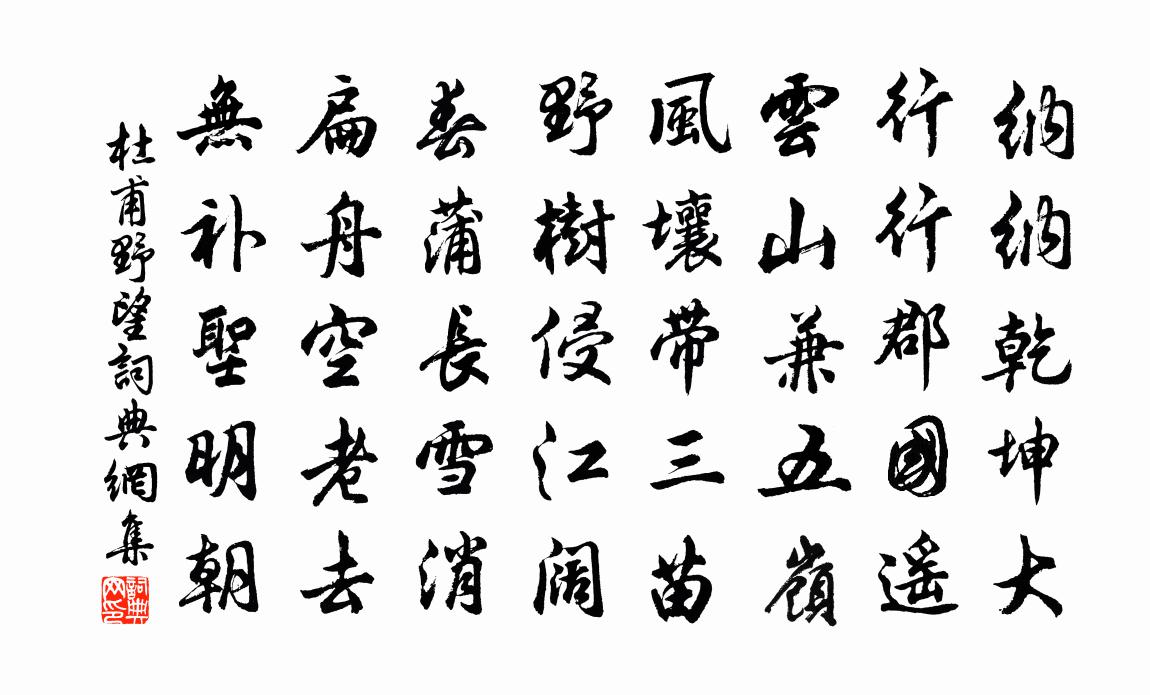 納納乾坤大
行行郡國遥
雲山兼五嶺
風壤帶三苗
野樹侵江闊
春蒲長雪消
扁舟空老去
無补聖明朝
杜甫野望詞典網集
詞典网印